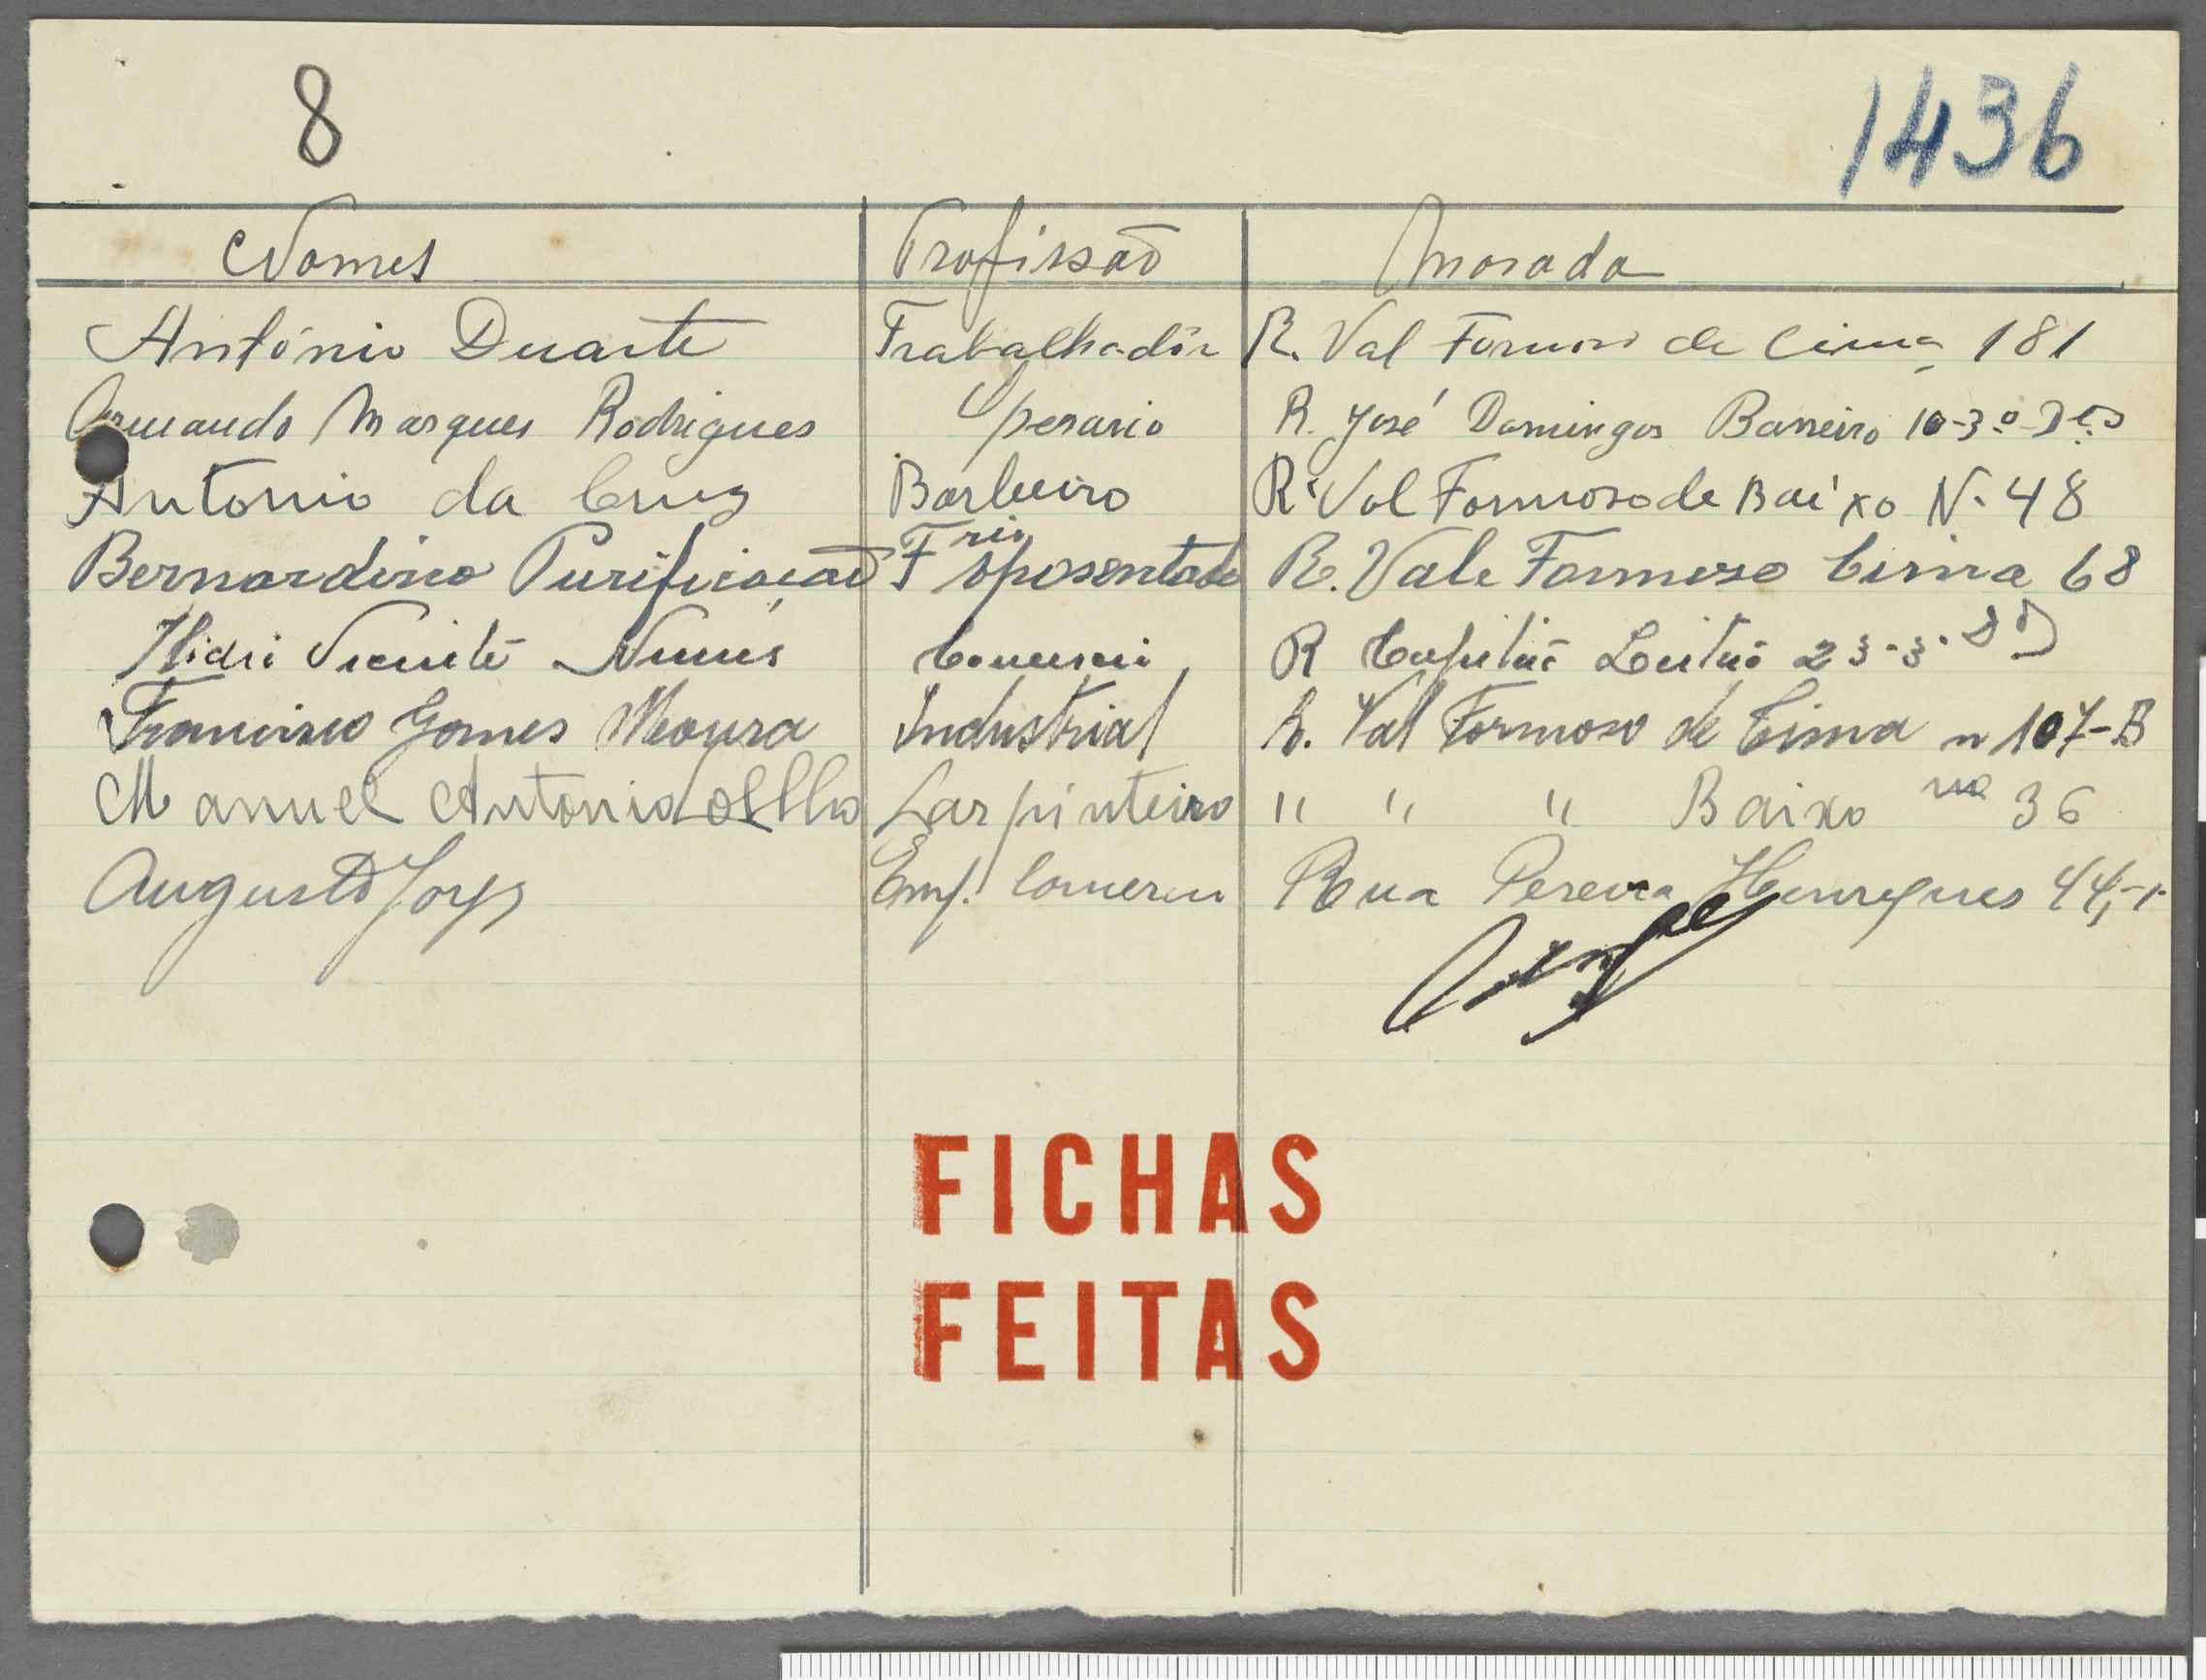 8
1436
Nomes Profissão Morada
António Duarte Trabalhadôr R. Val Formoso de Cima 181
Armando Marques Rodrigues Operario R. José Domingos Barreiro 10-3º-Dto
Antonio da Cruz Barbeiro R. Val Formoso de Baixo N. 48
Bernardino Purificação F aposentado R. Vale Formoso Cima 68
Vicente Nunes Comercio R Capitão Leitão 23-3.
Francisco Gomes Moura Industrial R. Val Formoso de Cima n 107-B
Manuel Antonio Carpinteiro " " " Baixo no 36
Augusto Jorge Emp. Comercio Rua Pereira Henriques 44,-1
FICHAS
FEITAS